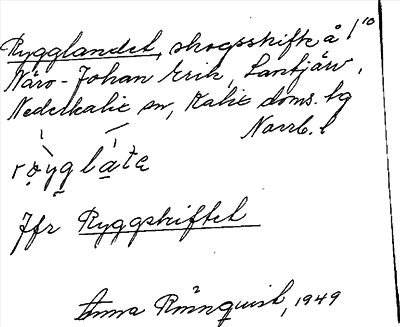 Rygglandet, skogsskifte å 1/10
Näro-Johan Erik, Lantjärv,
Nederkalix sn, Kalix doms. tg
Norrb. l
Jfr Ryggskiftet
Anna Rönnquist, 1949